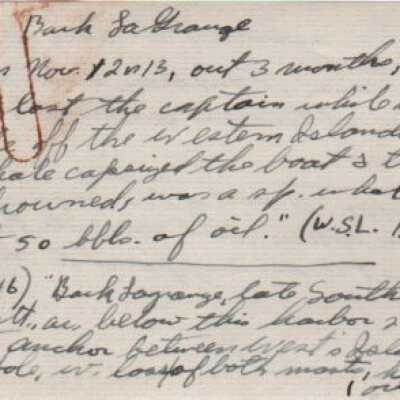 Bark LaGrange
Nov. 12 n 13, out 3 months,
lost the captain while
off the Western Islands
hale capsized the boat & t
rowned, was a sp. whal
50 bbls. of oil." (W.S.L. 1
16) "Bark Lagrange, late South
tt., ar. below this harbor
anchor between West's Isla
ole, w. loss of both masts, h